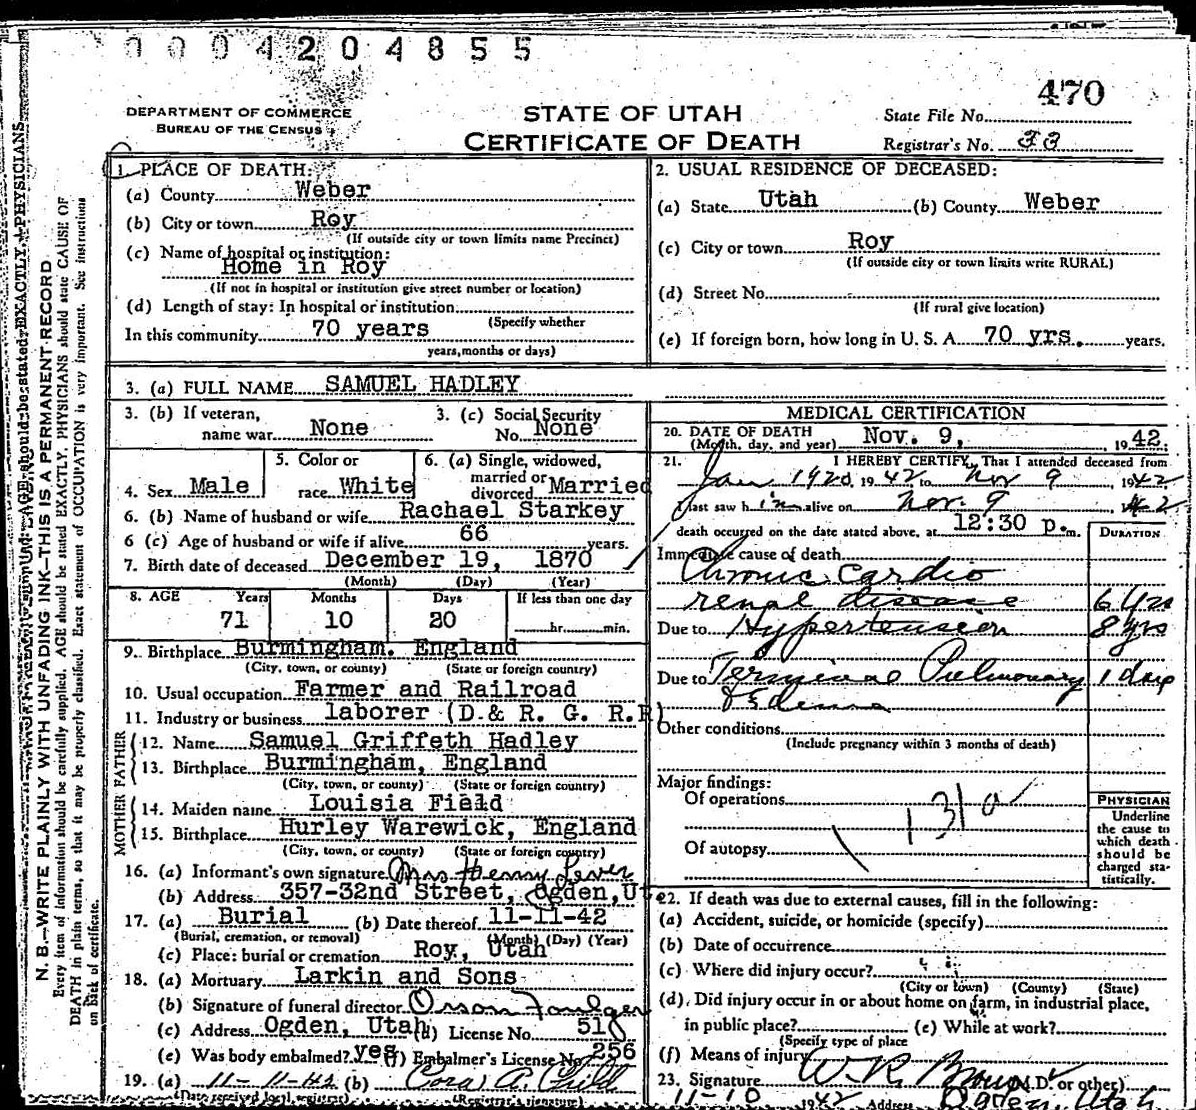 0004204855
470
DEPARTMENT OF COMMERCE
BUREAU OF THE CENSUS
STATE OF UTAH
CERTIFICATE OF DEATH
State File No.
Registrar's No. 33
1. PLACE OF DEATH:
(a) County Weber
(b) City or town Roy
(If outside city or town limits name Precinct)
(c) Name of hospital or institution:
Home in Roy
(If not in hospital or institution give street number or location)
(d) Length of stay: In hospital or institution
(Specify whether
In this community 70 years
years, months or days)
2. USUAL RESIDENCE OF DECEASED:
(a) State Utah (b) County Weber
(c) City or town Roy
(If outside city or town limits write RURAL)
(d) Street No.
(If rural give location)
(e) If foreign born, how long in U. S. A. 70 yrs. years.
3. (a) FULL NAME SAMUEL HADLEY
3. (b) If veteran, name war None
3. (c) Social Security No. None
4. Sex Male
5. Color or race White
6. (a) Single, widowed, married or divorced Married
6. (b) Name of husband or wife Rachael Starkey
6 (c) Age of husband or wife if alive 66 years.
7. Birth date of deceased December 19, 1870
(Month) (Day) (Year)
8. AGE Years Months Days If less than one day
71 10 20 hr. min.
9. Birthplace Burmingham. England
(City, town, or county) (State or foreign country)
10. Usual occupation Farmer and Railroad
11. Industry or business laborer (D.& R. G. R.R)
FATHER
12. Name Samuel Griffeth Hadley
13. Birthplace Burmingham, England
(City, town, or county) (State or foreign country)
MOTHER
14. Maiden name Louisia Field
15. Birthplace Hurley Warewick, England
(City, town, or county) (State or foreign country)
16. (a) Informant's own signature Mrs Henry Lever
(b) Address 357-32nd Street, Ogden, Ut
17. (a) Burial (b) Date thereof 11-11-42
(Burial, cremation, or removal) (Month) (Day) (Year)
(c) Place: burial or cremation Roy, Utah
18. (a) Mortuary Larkin and Sons
(b) Signature of funeral director
(c) Address Ogden, Utah (d) License No. 518
(e) Was body embalmed? yes (f) Embalmer's License No. 256
19. (a) 11-11-42 (b) Cora A. Child
(Date received local registrar) (Registrar's signature)
MEDICAL CERTIFICATION
20. DATE OF DEATH
(Month, day, and year) Nov. 9, 1942.
21. I HEREBY CERTIFY, That I attended deceased from
Jan 1920, 1942 to Nov 9, 1942
I last saw him alive on Nov. 9 42
death occurred on the date stated above, at 12:30 p.m.
DURATION
Immediate cause of death
Chronic Cardio
renal disease 6 yrs
Due to Hypertension 8 yrs
Due to Terminal Pulmonary 1 day
Edema
Other conditions
(Include pregnancy within 3 months of death)
Major findings:
Of operations
131a
Of autopsy
PHYSICIAN
Underline
the cause to
which death
should be
charged sta-
tistically.
22. If death was due to external causes, fill in the following:
(a) Accident, suicide, or homicide (specify)
(b) Date of occurrence
(c) Where did injury occur?
(City or town) (County) (State)
(d) Did injury occur in or about home on farm, in industrial place,
in public place? (e) While at work?
(Specify type of place
(f) Means of injury
23. Signature W. R. (M.D. or other)
11-10 1942 Address Ogden, Utah
N. B.—WRITE PLAINLY WITH UNFADING INK—THIS IS A PERMANENT RECORD
Every item of information should be carefully supplied. AGE should be stated EXACTLY. PHYSICIANS should state CAUSE OF
DEATH in plain terms, so that it may be properly classified. Exact statement of OCCUPATION is very important. See instructions
on back of certificate.